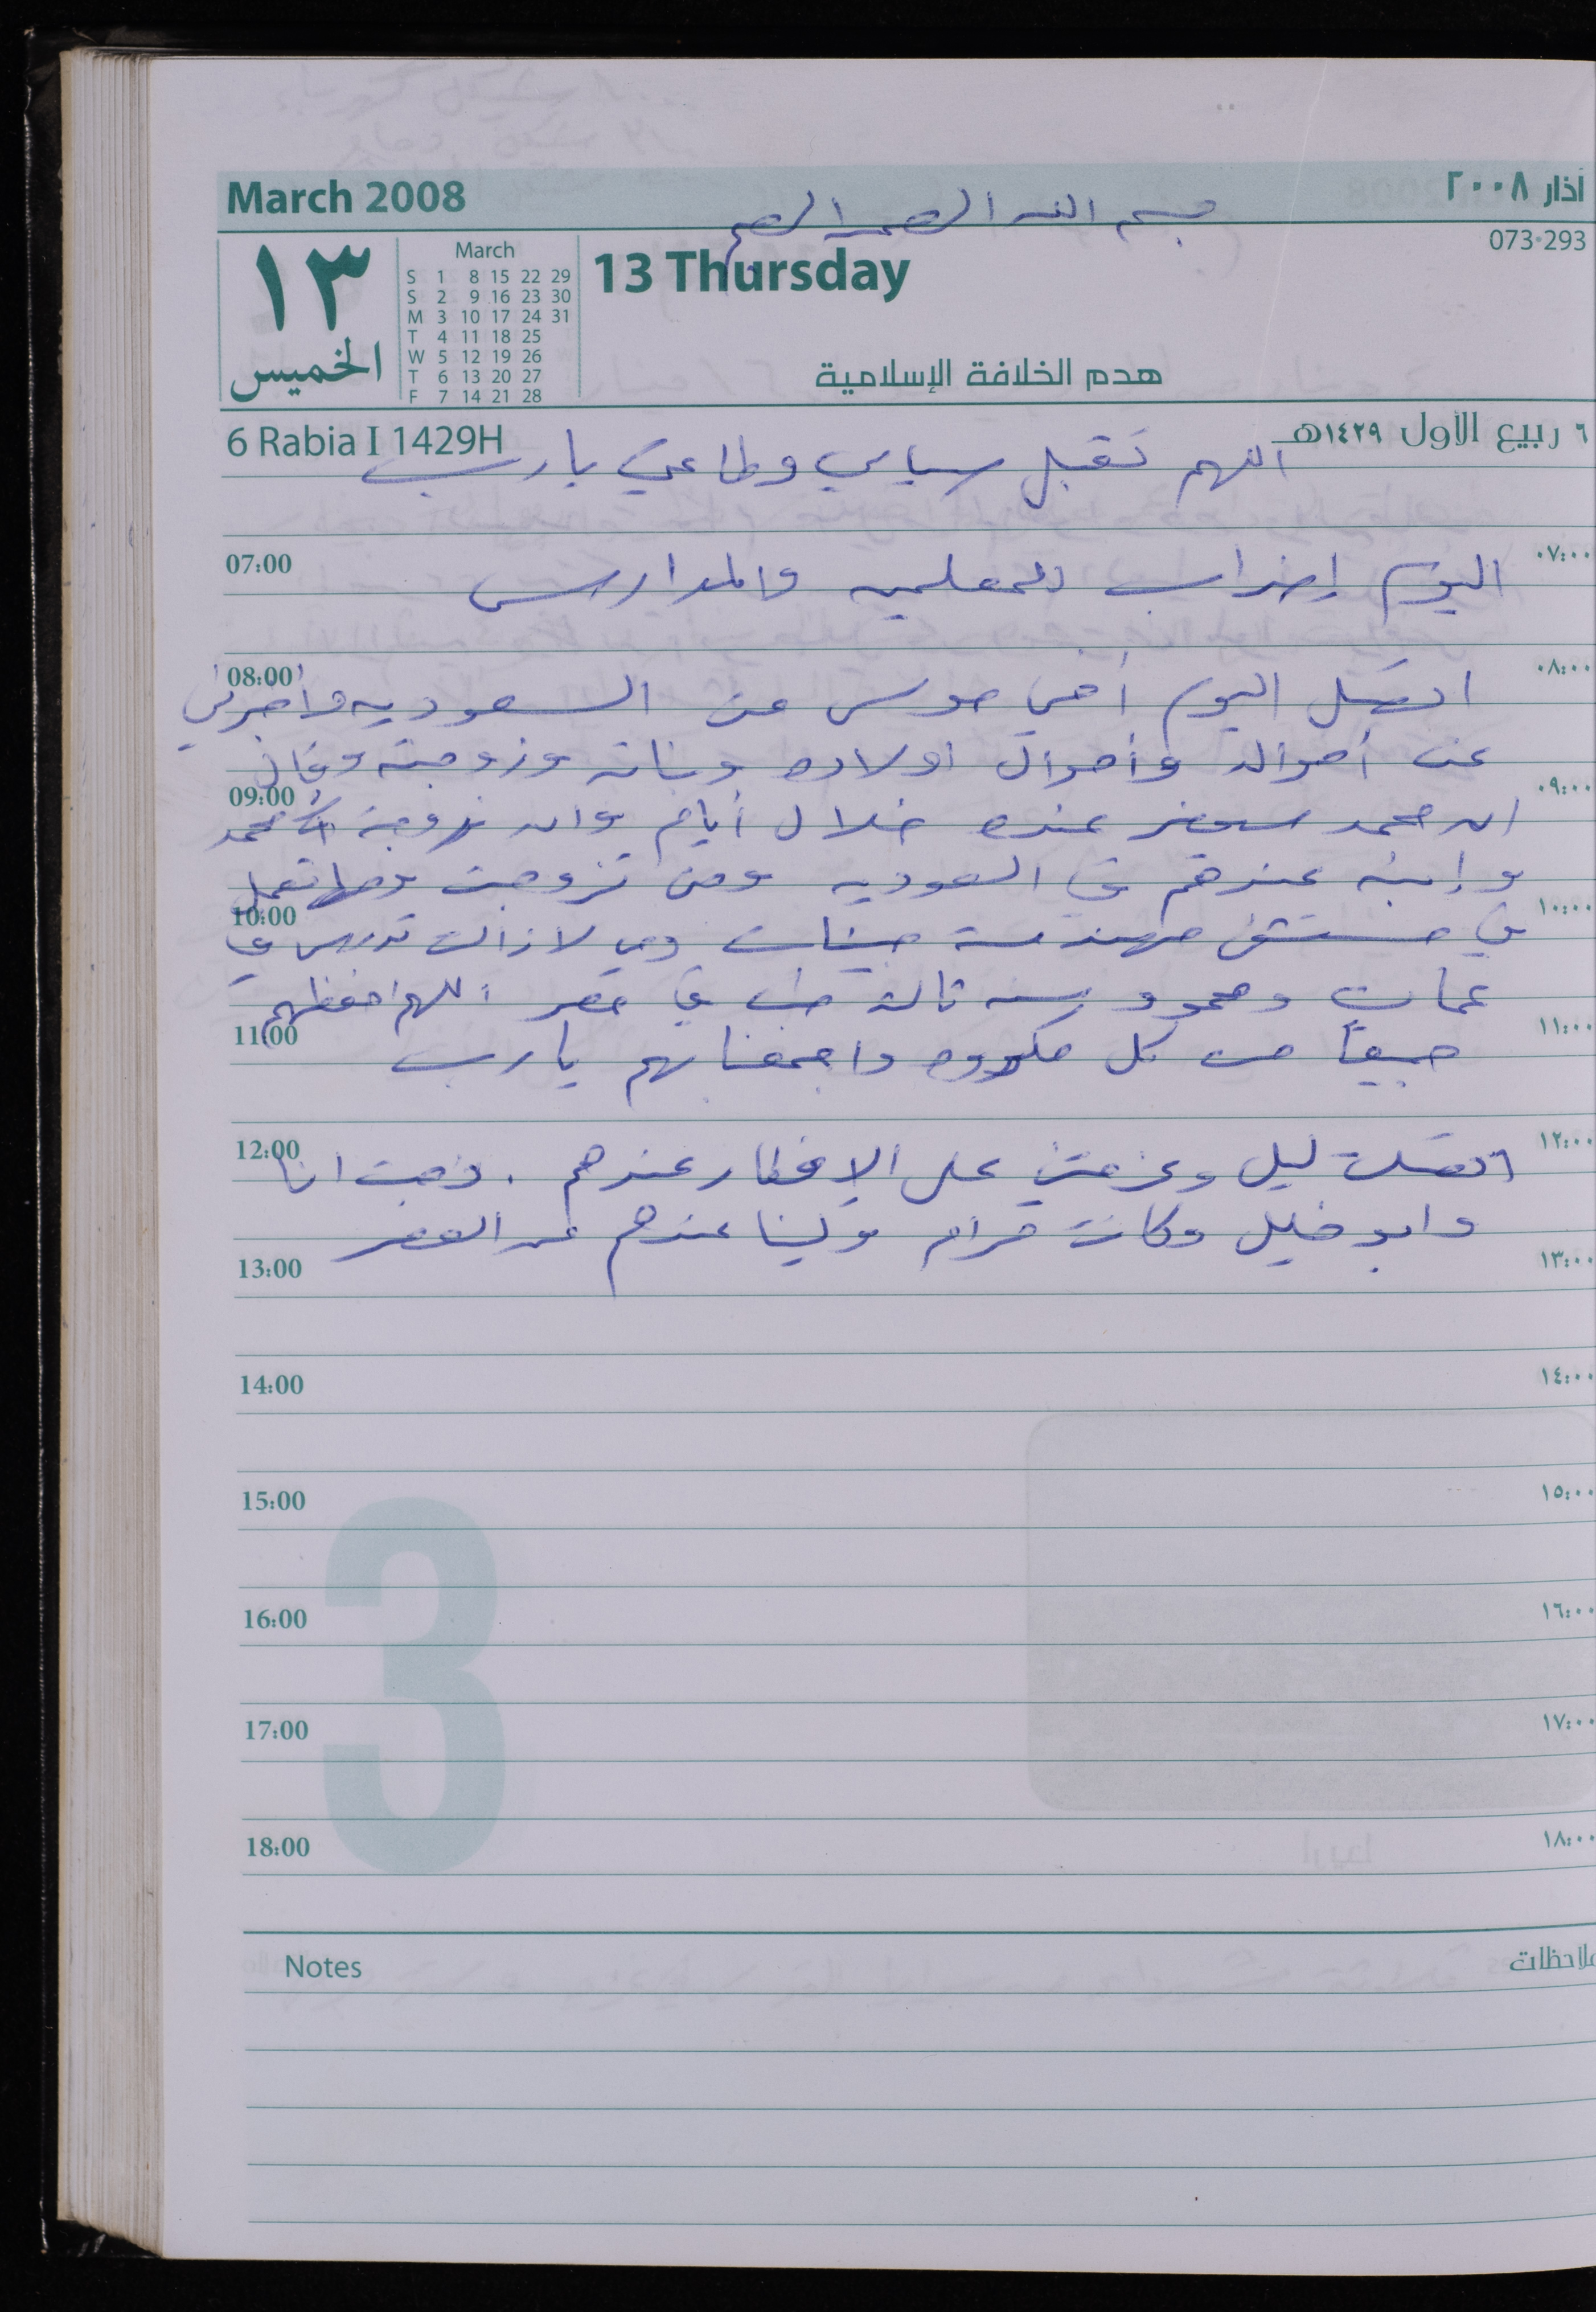 March 2008
آذار ٢٠٠٨
بسم الله الرحمن الرحيم
073-293
١٣
الخميس
March
S 1 8 15 22 29
S 2 9 16 23 30
M 3 10 17 24 31
T 4 11 18 25
W 5 12 19 26
T 6 13 20 27
F 7 14 21 28
13 Thursday
هدم الخلافة الإسلامية
6 Rabia I 1429H
٦ ربيع الأول ١٤٢٩هـ
اللهم تقبل صيامي وطاعتي يا رب
07:00 ٠٧:٠٠
اليوم إضراب للمعلمين والمدارس
08:00 ٠٨:٠٠
اتصل اليوم أخي موسى من السعوديه وأخبرني
عن أحواله وأحوال أولاده وبناته وزوجته وقال
09:00 ٠٩:٠٠
ان محمد سيحضر عنده خلال أيام وان زوجة محمد
وإبنه عندهم في السعوديه ومنى تزوجت وصها تعمل
10:00 ١٠:٠٠
في مستشفى مهندسة جينات وهي لا زالت تدرس في
عمان ومحمود سنه ثالثه طب في مصر اللهم احفظهم
11:00 ١١:٠٠
جميعاً من كل مكروه واجمعنا بهم يا رب
12:00 ١٢:٠٠
اتصلت ليلى وعزمتني على الإفطار عندهم . ذهبت انا
وابو خليل وكانت مرام ولينا عندهم من العصر
13:00 ١٣:٠٠
14:00 ١٤:٠٠
15:00 ١٥:٠٠
16:00 ١٦:٠٠
17:00 ١٧:٠٠
18:00 ١٨:٠٠
3
Notes
ملاحظات